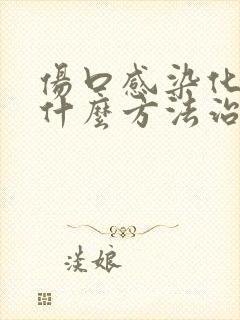 傷口感染化
什麼方法治
淡娘